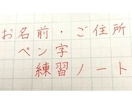 お名前・ご住所
ペン字
練習ノート